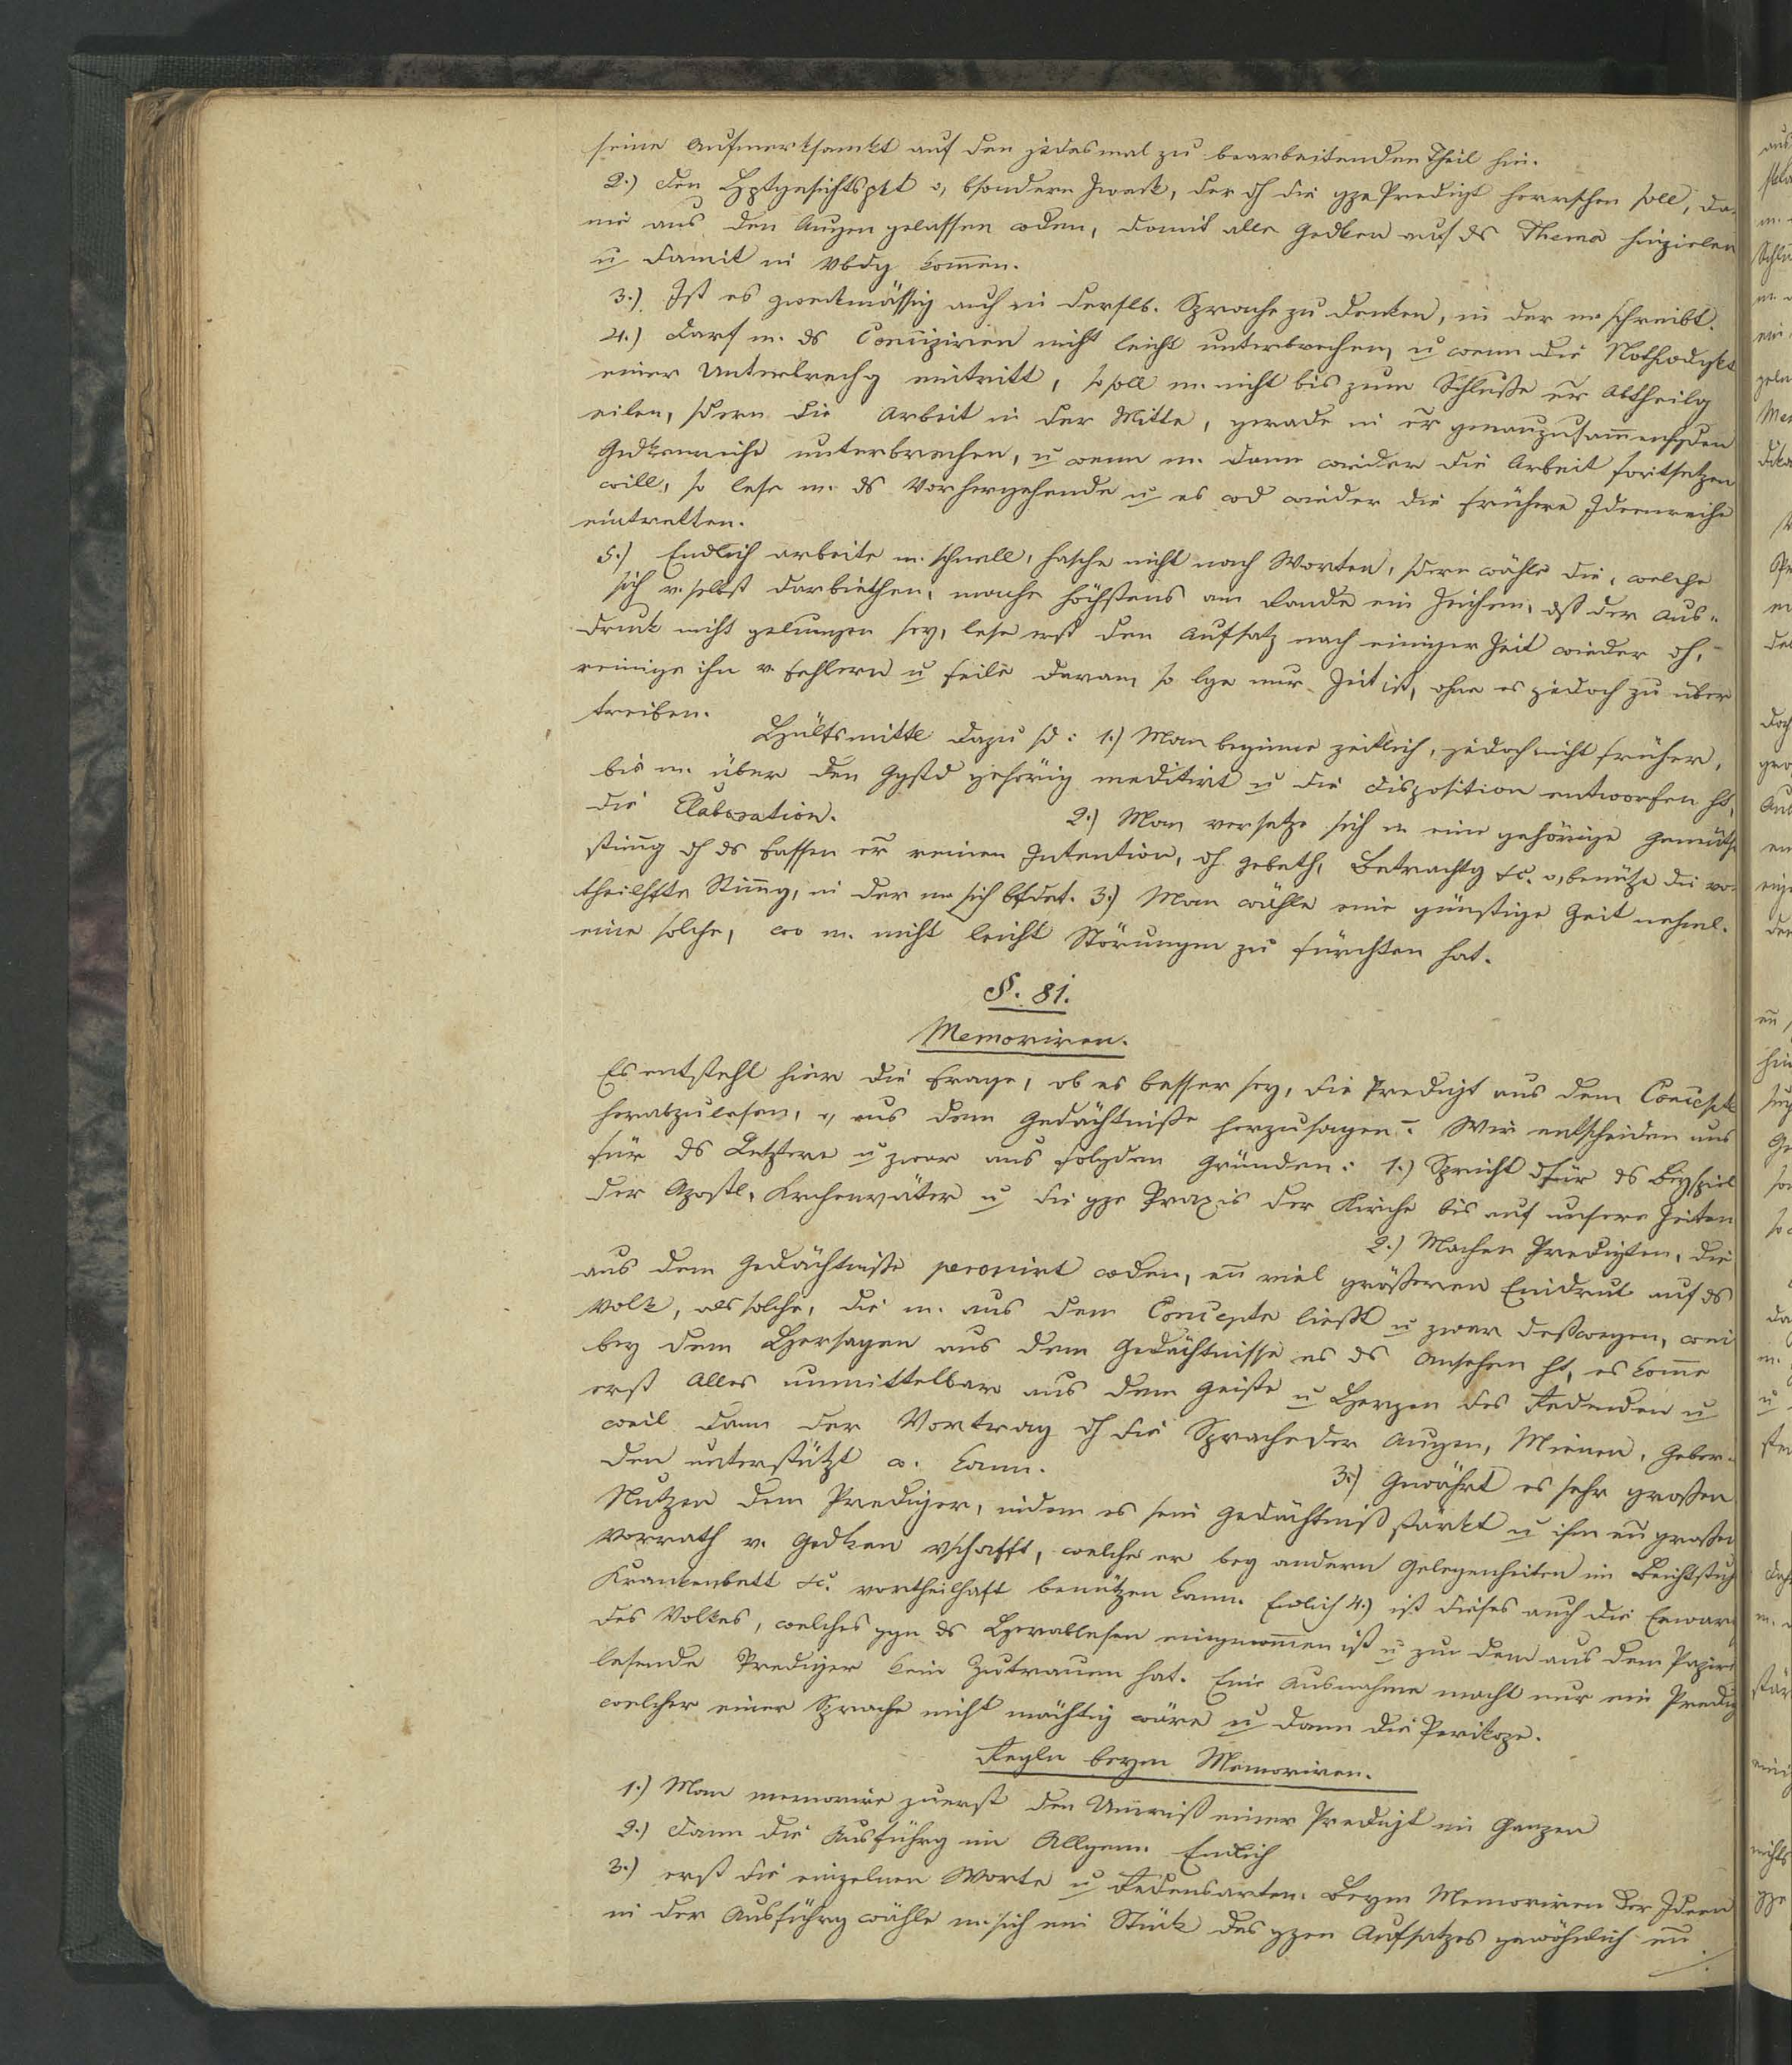 seine Aufmerksamkt auf den jedesmal zu bearbeitenden Theil hin.
2.) Den Hptgesichtspkt o, bsondern Zweck, der dh die gze Predigt herrschen soll, da
nie aus den Augen gelassen wden, damit alle Gedken auf ds Thema hinzielen
u damit in Vbdg kom̄en.
3.) Ist es zweckmässig auch in derslb. Sprache zu denken, in der m schreibt.
4.) Darf m. ds Concipiren nicht leicht unterbrechen, u wenn die Nothwdgkt
einer Unterbrechg eintritt, so soll m. nicht bis zum Schluße er Abtheilg
eilen, sdern die Arbeit in der Mitte, gerade in er genauzusam̄enhgden
Gedkenreihe unterbrechen, u wenn m. dann wieder die Arbeit fortsetzen
will, so lese m. ds Vorhergehende u es wd wieder die frühere Ideenreihe
eintretten.
5.) Endlich arbeite m. schnell, hasche nicht nach Worten, sdern wähle die, welche
sich v. selbst darbiethen, mache höchstens am Rande ein Zeichen, dß der Aus-
druck nicht gelungen sey, lese erst den Aufsatz nach einiger Zeit wieder dh,
reinige ihn v. Fehlern u feile daran, so lge nur Zeit ist, ohne es jedoch zu über
treiben.
Hülfsmittl dazu sd: 1.) Man beginne zeitlich, jedoch nicht früher,
bis m. über den Ggstd gehörig meditirt u die Disposition entworfen ht,
die Elaboration. 2.) Man versetze sich in eine gehörige Gemüths
stim̄g dh ds Fassen er reinen Intention, dh Gebeth, Betrachtg &c. o, benütze die vor
theilhfte Stim̄g, in der m sich bfdet. 3.) Man wähle eine günstige Zeit nehml.
eine solche, wo m. nicht leicht Störungen zu fürchten hat.
§. 81.
Memoriren.
Es entsteht hier die Frage, ob es besser sey, die Predigt aus dem Concepte
herabzulesen, o, aus dem Gedächtniße herzusagen. Wir entscheiden uns
für ds Letztere u zwar aus folgden Gründen: 1.) Spricht dfür ds Beyspiel
der Apostl, Krchenväter u die gze Praxis der Kirche bis auf unsere Zeiten
2.) Machen Predigten, die
aus dem Gedächtniße peronirt wden, en̄ viel größeren Eindruk auf ds
Volk, als solche, die m. aus dem Concepte ließt u zwar deßwegen, weil
bey dem Hersagen aus dem Gedächtnisse es ds Ansehen ht, es kom̄e
erst Alles unmittelbar aus dem Geiste u Herzen des Redenden u
weil dann der Vortrag dh die Sprache der Augen, Mienen, Geber-
den unterstützt w. kann. 3.) Gewährt es sehr großen
Nutzen dem Prediger, indem es sein Gedächtniß stärkt u ihm en̄ großen
Vorrath v. Gedken vschafft, welche er bey andern Gelegenheiten im Beichtstuh
Krankenbett &c. vortheilhaft benützen kann. Endlich 4.) ist dieses auch die Erwart
des Volkes, welches ggn ds Herablesen eingenom̄en ist u zur dem aus dem Papire
lesende Prediger kein Zutrauen hat. Eine Ausnahme macht nur ein Predig
welcher einer Sprache nicht mächtig wäre u dann die Perikope.
Regln beym Memoriren.
1.) Man memorire zuerst den Umriß einer Predigt im Ganzen
2.) Dann die Ausführg im Allgem. Endlich
3.) erst die einzelnen Worte u Redensarten. Beym Memoriren der Ideen
in der Ausführg wähle m. sich ein Stück des gzen Aufsatzes gewöhnlich en̄